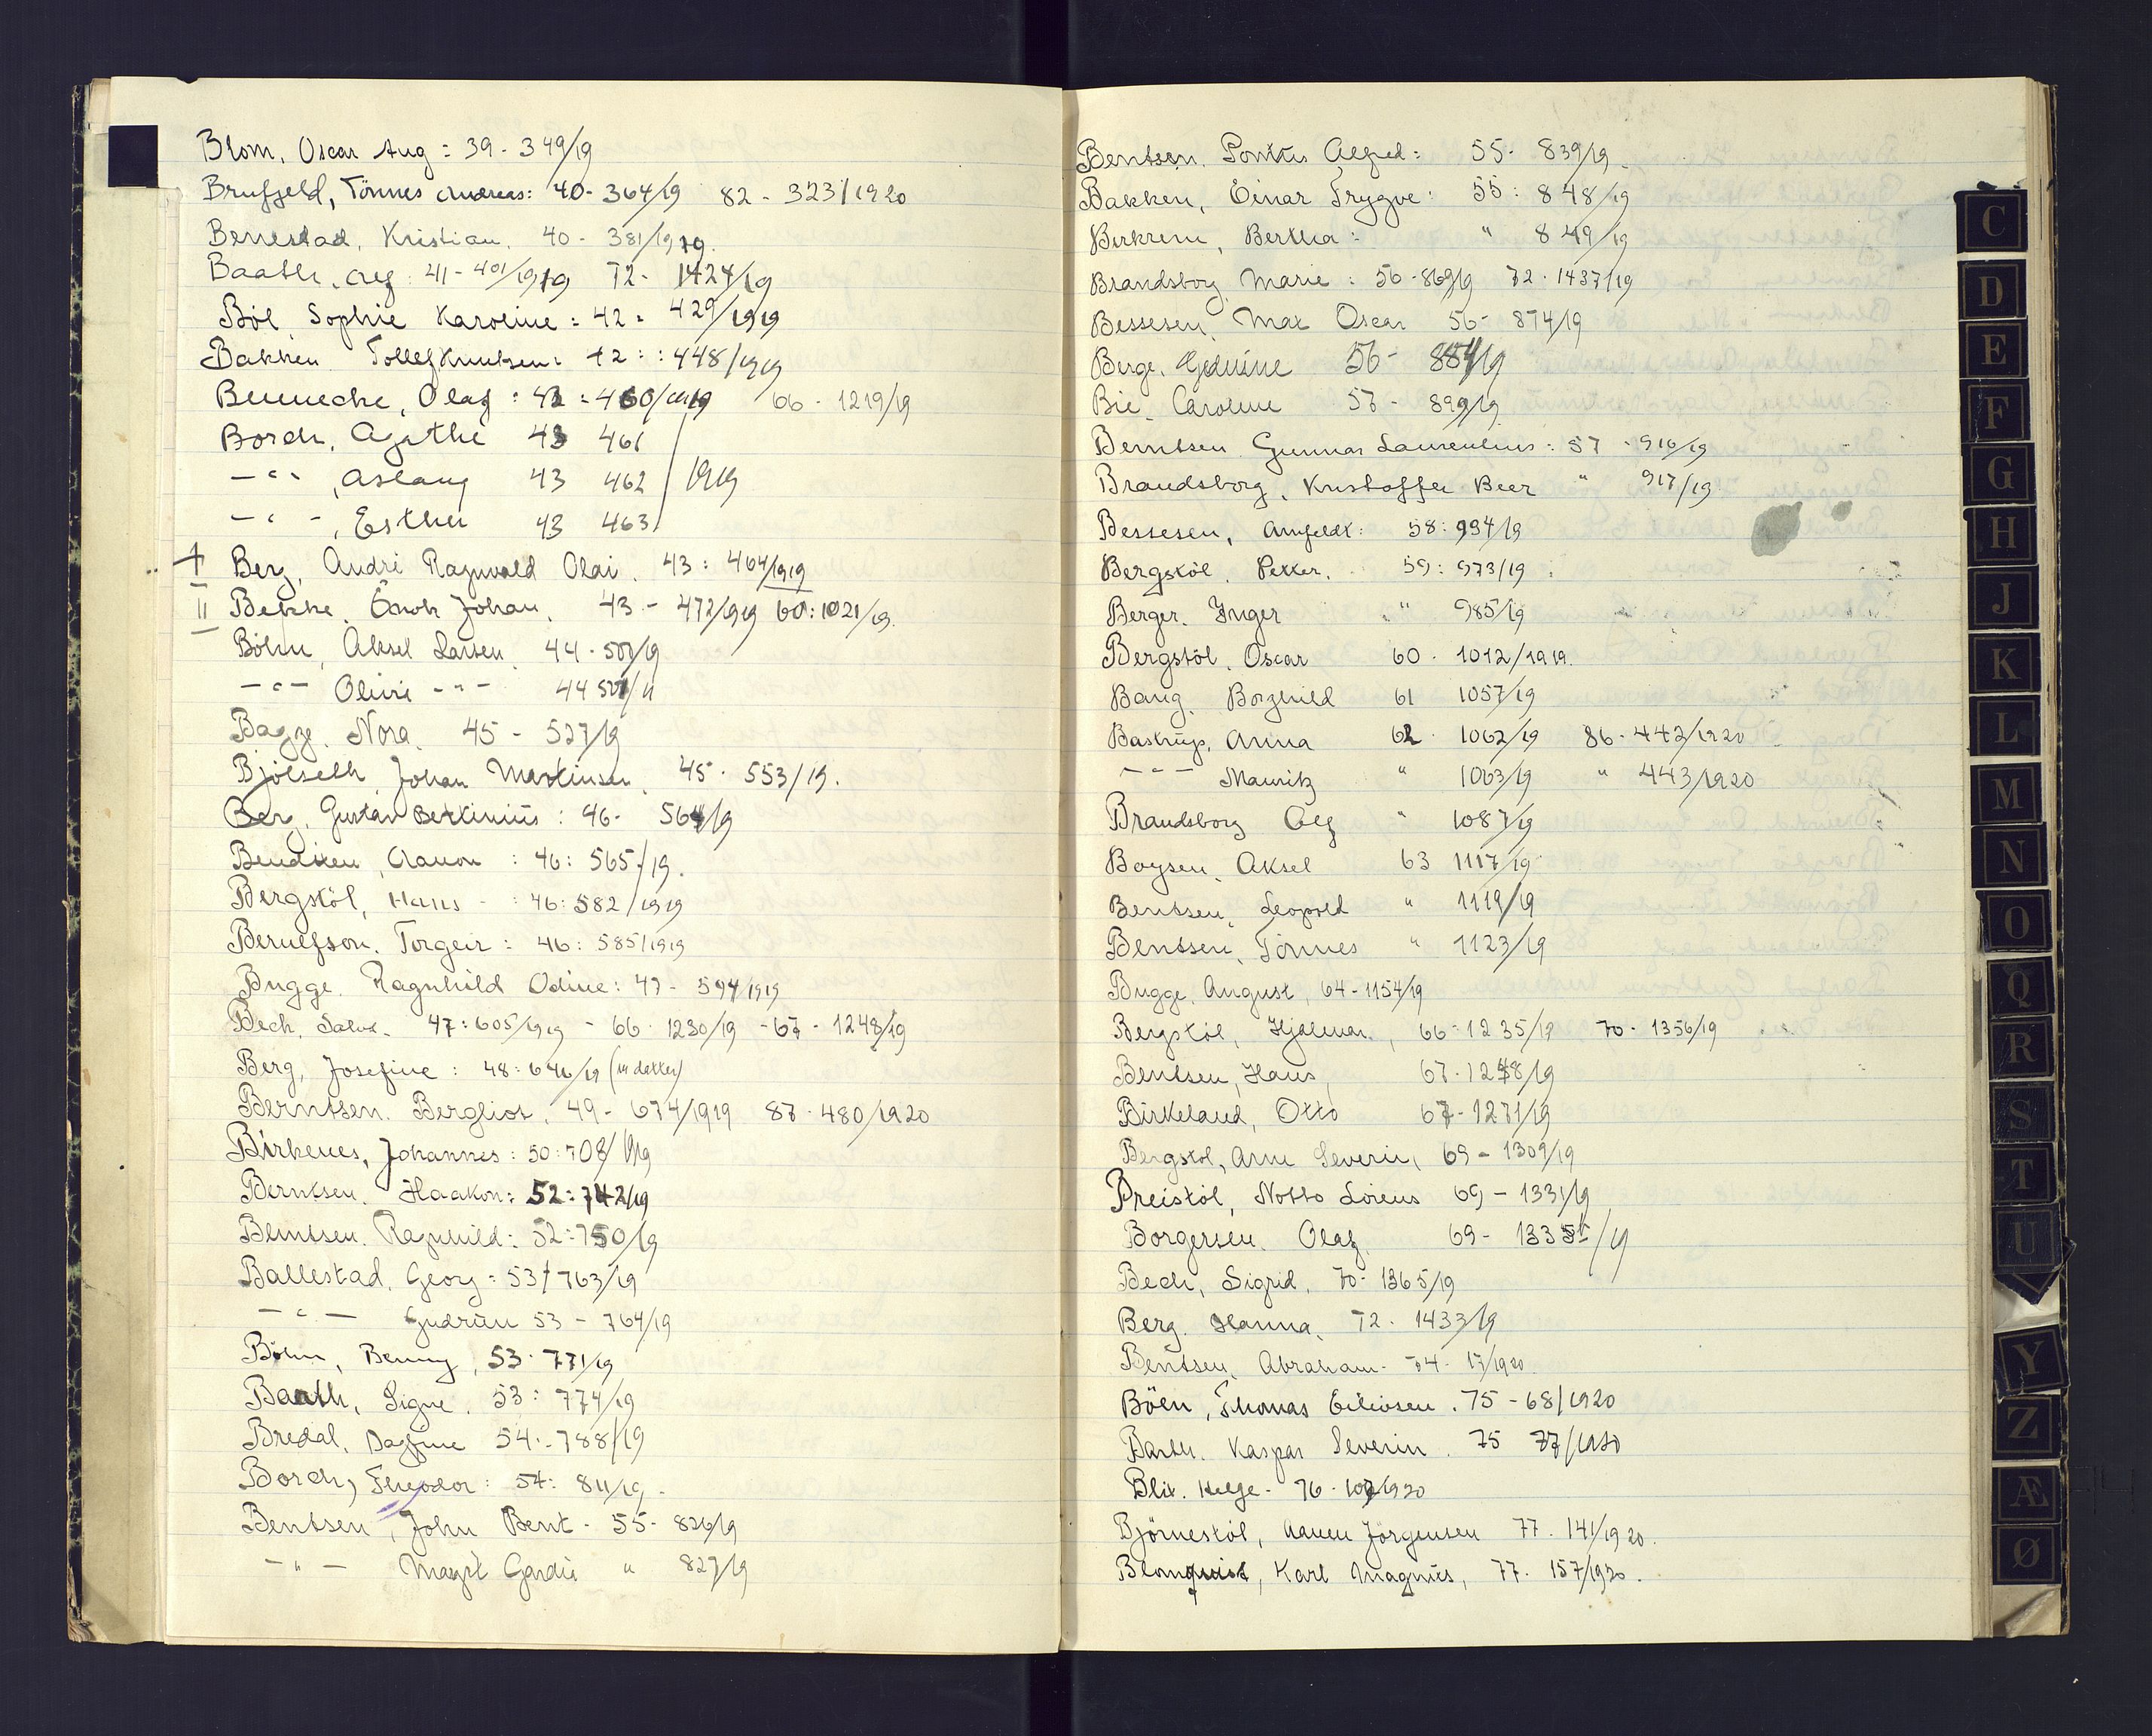 Blom, Oscar Aug: 39 - 349/19
Brufjeld, Tönnes Andreas: 40 - 364/19 82 - 323/1920
Benestad, Kristian. 40 - 381/1919.
Baath, Alf: 41 - 401/1919 72 - 1424/19
Böe, Sophie Karoline: 42: 429/1919
Bakken Tollef Knutsen: 42: 448/1919
Bennecke, Olaf: 43: 460/1919 66 - 1219/19
Borch, Agathe 43 461
- " - , Aslaug 43 462 /1919
- " - , Esther 43 463
+ Berg, André Ragnvald Olai. 43: 464/1919
II Bekke, Enok Johan, 43 - 472/1919 60: 1021/19.
Böhn, Aksel Larsen, 44 - 500/19
- " - Olivie - " - 44 501/"
Bagge, Nora, 45 - 527/19
Bjölseth, Johan Martinsen, 45 - 553/19.
Berg, Gustav Bertinius: 46 - 564/19
Bendixen, Aanon: 46: 565/19.
Bergstöl, Hans - : 46: 582/1919
Berulfson, Torgeir: 46: 585/1919
Bugge, Ragnhild Odine: 47 - 594/1919
Bech, Salve. 47: 605/1919 - 66 - 1230/19 - 67 - 1248/19
Berg, Josefine: 48: 646/19 (m datter)
Berntsen, Bergliot, 49 - 674/1919 87 - 480/1920
Birkenes, Johannes: 50: 708/1919
Berntsen, Haakon: 52: 742/19
Berntsen, Ragnhild: 52: 750/19
Ballestad, Georg: 53/763/19
- " - Gudrun 53 - 764/19
Böhn, Benny, 53 - 771/19
Baath, Signe, 53: 774/19
Bredal, Dagfine 54 - 788/19
Borch, Theodor: 54: 811/19 -
Bentsen, John Bent - 55 - 826/19
- " - Margit Gardie " 827/19
Bentsen, Pontus Alfred: 55 - 839/19
Bakken, Einar Trygve: 55: 848/19
Birkrem, Bertha: " 849/19
Brandsborg Marie: 56 - 869/19 72 - 1437/19
Bessesen, Max Oscar 56 - 874/19
Berge, Gudrune 56 - 884/19
Bie, Caroline 57 - 899/19
Berntsen, Gunnar Laurentius: 57 - 916/19
Brandsborg, Kristoffer Beer " 917/19
Bessesen, Arnfeldt: 58: 934/19
Bergstöl, Petter, 59: 973/19
Berger, Inger " 985/19
Bergstöl, Oscar 60 - 1012/1919.
Bang, Borghild 61 1057/19
Bastrup, Anna 62 - 1062/19 86 - 442/1920
- " - Mauritz " 1063/19 " 443/1920
Brandsborg Alf " 1087/19
Boysen, Aksel 63 1117/19
Bentsen, Leopold " 1119/19
Bentsen, Tönnes " 1123/19
Bugge, August, 64 - 1154/19
Bergstöl, Hjalmar, 66 - 1235/19 70 - 1356/19
Bentsen, Hans, 67 - 1258/19
Birkeland, Otto 67 - 1271/19
Bergstöl, Arne Severin, 69 - 1309/19
Breistöl, Notto Lorens 69 - 1331/19
Borgersen, Olaf, 69 - 1335/19
Bech, Sigrid, 70 - 1365/19
Berg, Hanna, 72 - 1433/19
Bentsen, Abraham - 74 - 17/1920
Böen, Thomas Eilivsen. 75 - 68/1920
Barth, Kaspar Severin. 75 77/1920
Blix, Helge - 76 - 107/1920
Björnestöl, Aanen Jörgensen 77 - 141/1920.
Blomquist, Karl Magnus, 77 - 157/1920.
C
D
E
F
G
H
J
K
L
M
N
O
Q
R
S
T
U
Y
Z
Æ
Ø